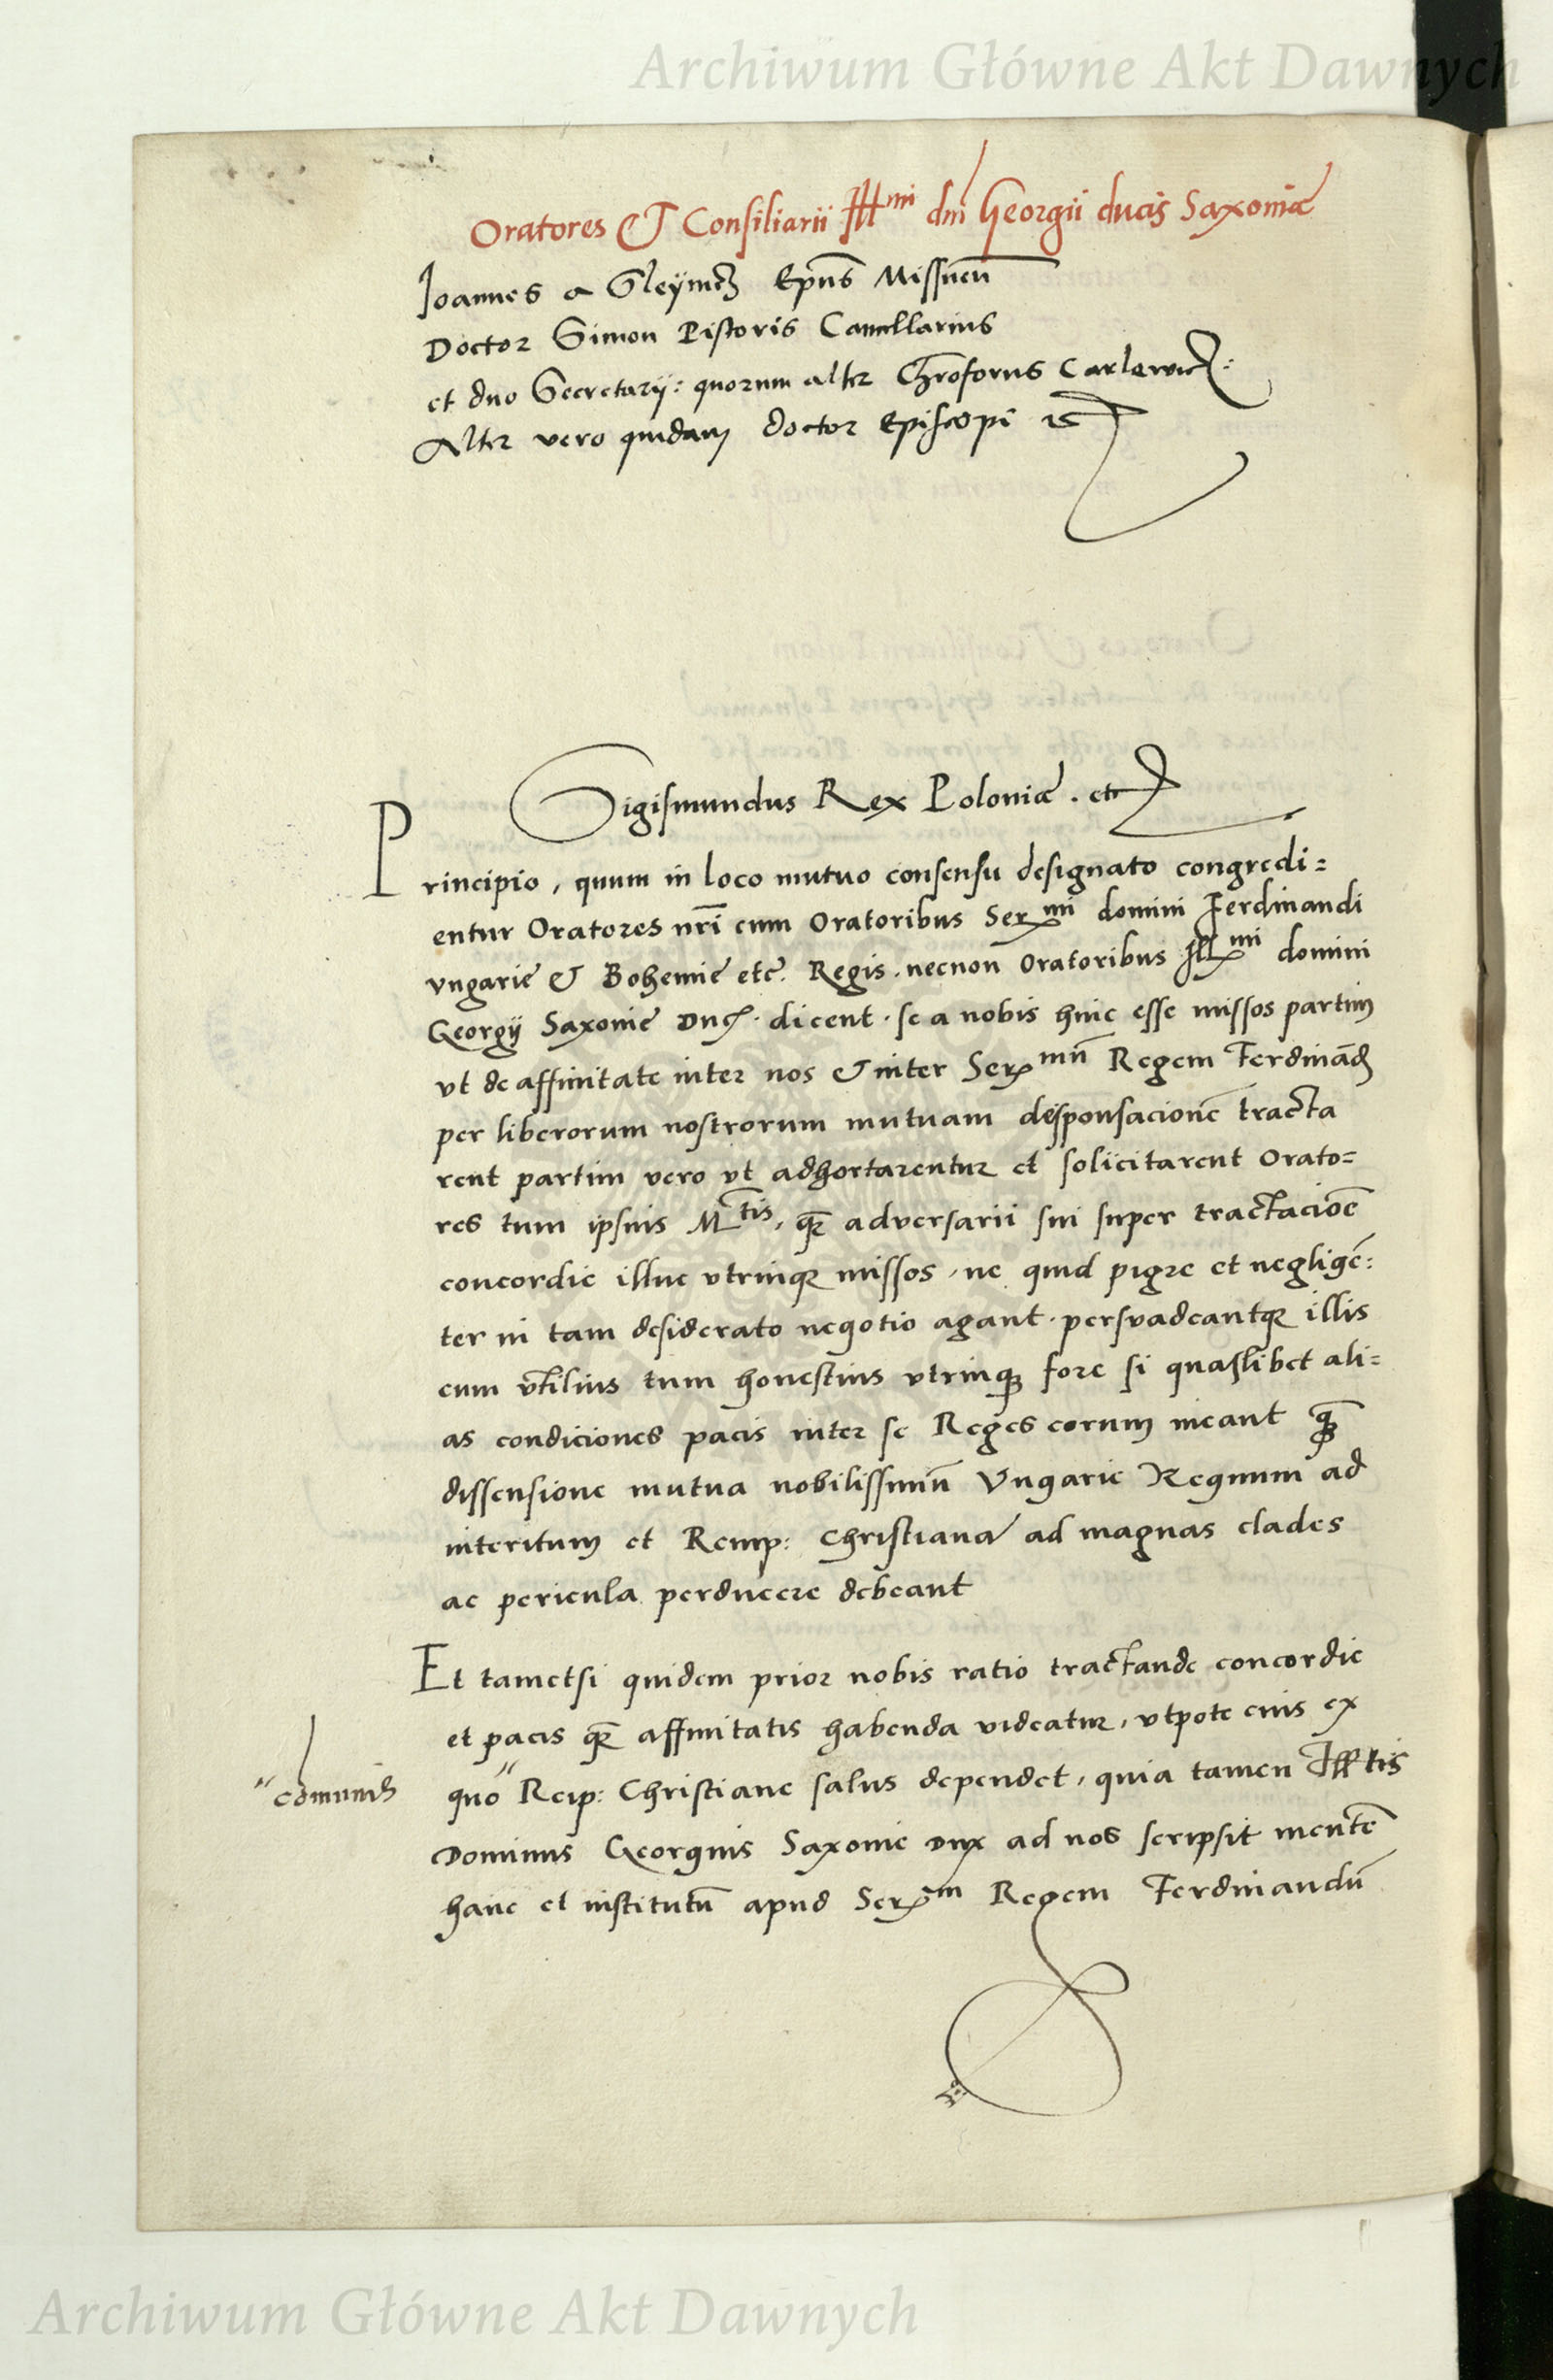 Archiwum Główne Akt Dawnych
Oratores et Consiliarii Ill^mi dni Georgii ducis Saxoniae
Joannes a Sleynicz Epus Missnen
Doctor Simon Pistoris Cancellarius
et duo Secretarij: quorum alter Chroforus Carlewicz:
Alter vero quidam doctor Episcopi
Sigismundus Rex Poloniæ. etc
Principio, quum in loco mutuo consensu designato congredi=
entur Oratores nri cum Oratoribus Ser^mi domini Ferdinandi
vngarie & Bohemie etc. Regis. necnon Oratoribus Ill^mi domini
Georgij Saxonie Duc. dicent. se a nobis huic esse missos partim
vt de affinitate inter nos & inter Ser^mu Regem Ferdinand
per liberorum nostrorum mutuam desponsacione tracta
rent partim vero vt adhortarentur et solicitarent Orato=
res tum ipsius M^tis, q adversarii sui super tractacioe
concordie illuc vtrinq missos, ne quid pigre et neglige:
ter in tam desiderato negotio agant. persvadeantq illis
cum vtilius tum honestius vtrinq fore si quaslibet ali=
as condiciones pacis inter se Reges eorum ineant q
dissensione mutua nobilissimu Vngarie Regnum ad
interitum et Remp: christiana ad magnas clades
ac pericula perducere debeant
Et tametsi quidem prior nobis ratio tractande concordie
et pacis q affinitatis habenda videatur, vtpote cuis ex
"comunis quo" Reip: Christiane salus dependet, quia tamen Ill^tis
Dominus Georgius Saxonie Dux ad nos scripsit mente
hanc et institutu apud Ser^m Regem Ferdinandu
Archiwum Główne Akt Dawnych